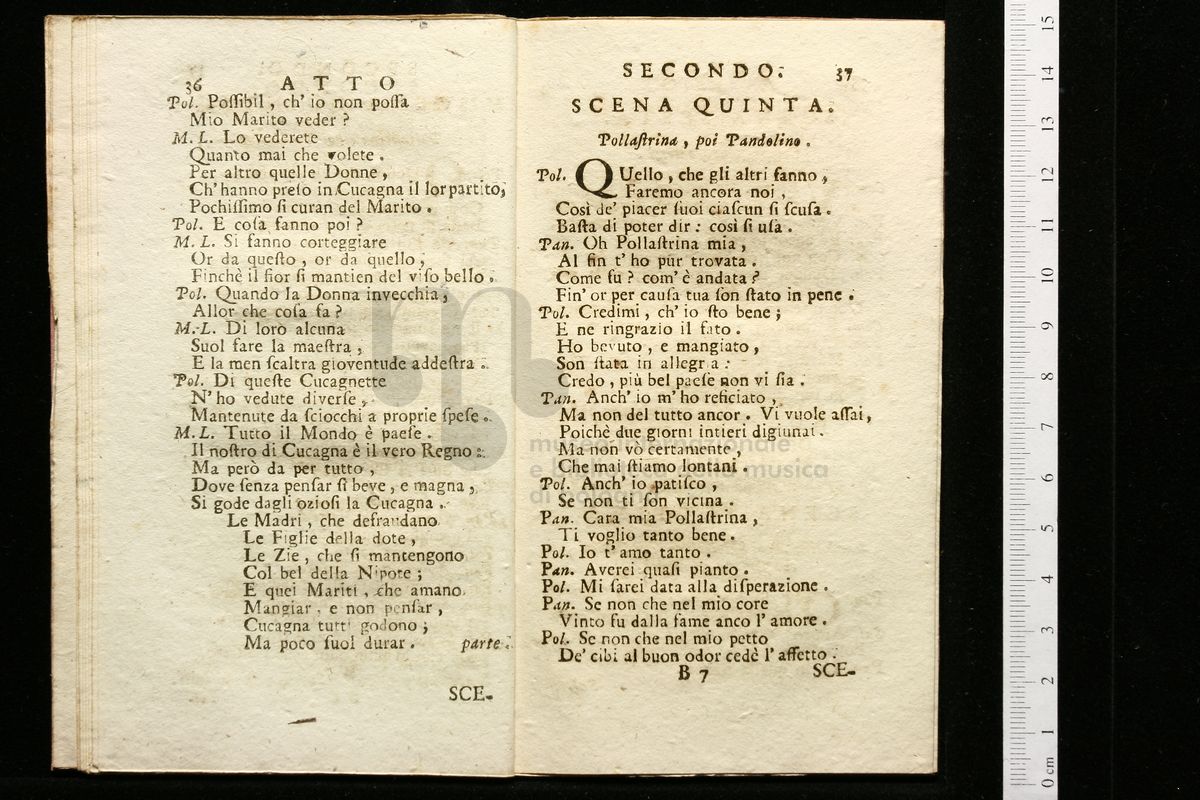 36 ATTO
Pol. Poſſibil, ch' io non poſſa
Mio Marito veder?
M. L. Lo vederete
Quanto mai che volete.
Per altro quelle Donne,
Ch' hanno preſo in Cucagna il lor partito,
Pochiſſimo ſi curan del Marito.
Pol. E coſa fanno poi?
M. L. Si fanno corteggiare
Or da queſto, or da quello,
Finchè il fior ſi mantien del viſo bello.
Pol. Quando la Donna invecchia,
Allor che coſa fa?
M. L. Di loro alcuna
Suol fare la maeſtra,
E la men ſcaltra gioventude addeſtra.
Pol. Di queſte Cucagnette
N' ho vedute diverſe,
Mantenute da ſciocchi a proprie ſpeſe.
M. L. Tutto il Mondo è paeſe.
Il noſtro di Cucagna è il vero Regno:
Ma però da per tutto,
Dove ſenza penſar ſi beve, e magna,
Si gode dagli ozioſi la Cucagna.
Le Madri, che defraudano
Le Figlie della dote,
Le Zie, che ſi mantengono
Col bel della Nipote;
E quei Mariti, che amano
Mangiar, e non penſar,
Cucagna tutti godono;
Ma poco ſuol durar. parte.
SCE-
SECONDO. 37
SCENA QUINTA.
Pollaſtrina, poi Pandolino.
Pol. QUello, che gli altri fanno,
Faremo ancora noi.
Così de' piacer ſuoi ciaſcun ſi ſcuſa.
Baſta di poter dir: così ſi uſa.
Pan. Oh Pollaſtrina mia,
Al fin t' ho pur trovata.
Come fu? com' è andata?
Fin' or per cauſa tua ſon ſtato in pene.
Pol. Credimi, ch' io ſto bene;
E ne ringrazio il fato.
Ho bevuto, e mangiato,
Son ſtata in allegria:
Credo, più bel paeſe non vi ſia.
Pan. Anch' io m' ho reficiato,
Ma non del tutto ancor. Vi vuole aſſai,
Poichè due giorni intieri digiunai.
Ma non vò certamente,
Che mai ſtiamo lontani.
Pol. Anch' io patiſco,
Se non ti ſon vicina.
Pan. Cara mia Pollaſtrina,
Ti voglio tanto bene.
Pol. Io t' amo tanto.
Pan. Averei quaſi pianto.
Pol. Mi ſarei data alla diſperazione.
Pan. Se non che nel mio core
Vinto fu dalla fame anco l' amore.
Pol. Se non che nel mio petto
De' cibi al buon odor cedè l' affetto.
B 7 SCE-
museo internazionale
e biblioteca della musica
di bologna
0 cm 1 2 3 4 5 6 7 8 9 10 11 12 13 14 15